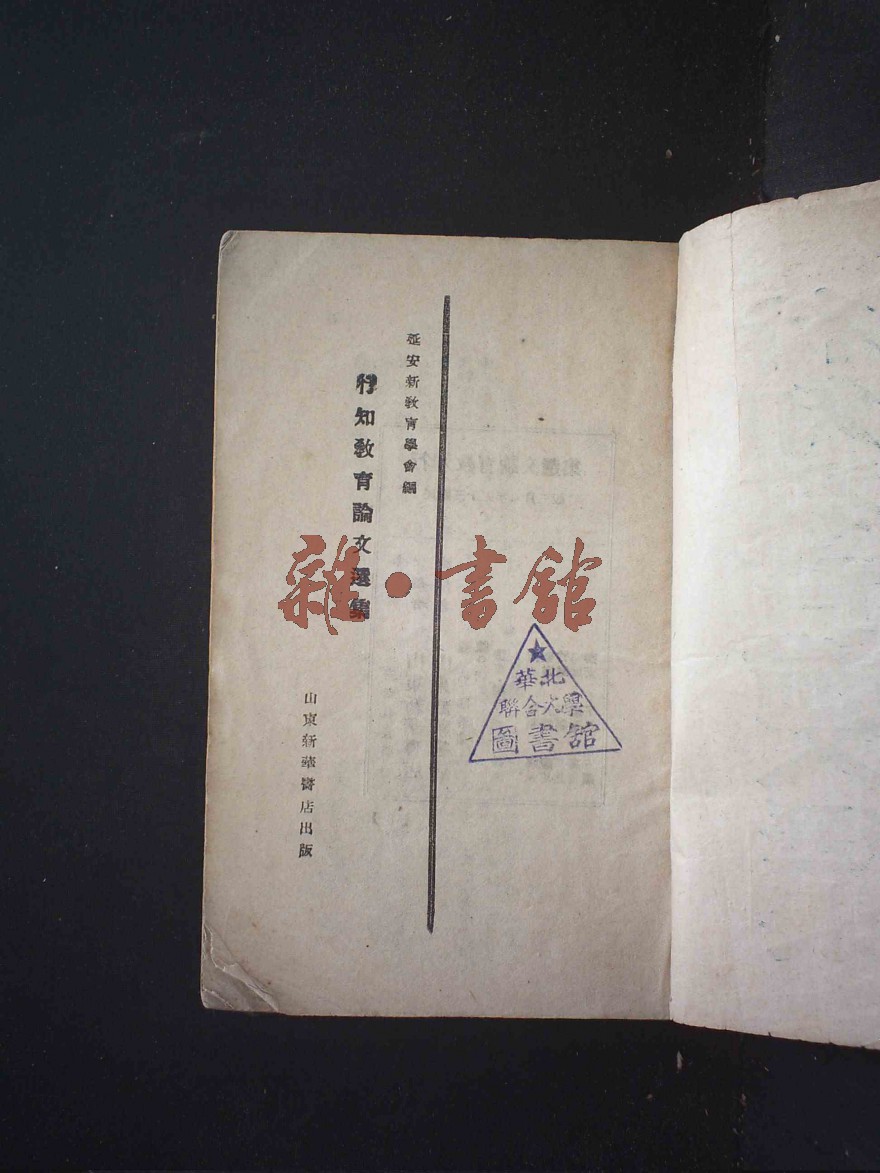 延安新敎育學會編
行知敎育論文選集
山東新華書店出版
雜·書館
★
華北
聯合大學
圖書舘